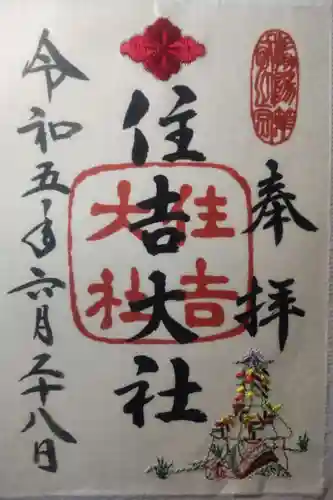 奉拝
住吉大社
住吉
大社
令和五年六月二十八日